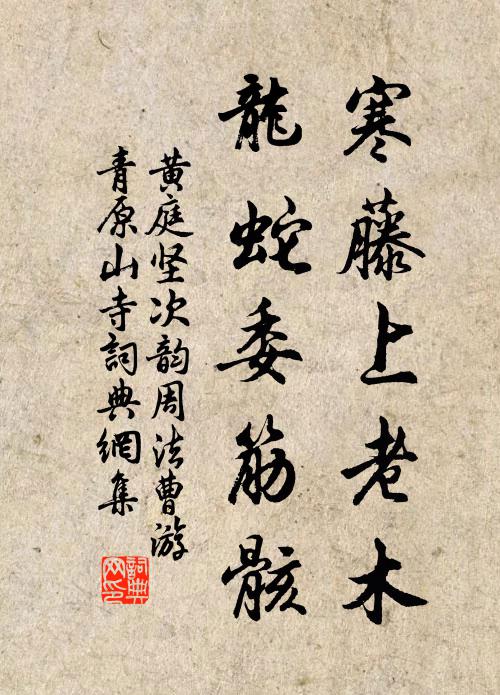 寒藤上老木
龍蛇委筋骸
黄庭坚次韵周法曹游
青原山寺詞典網集
詞典
网印